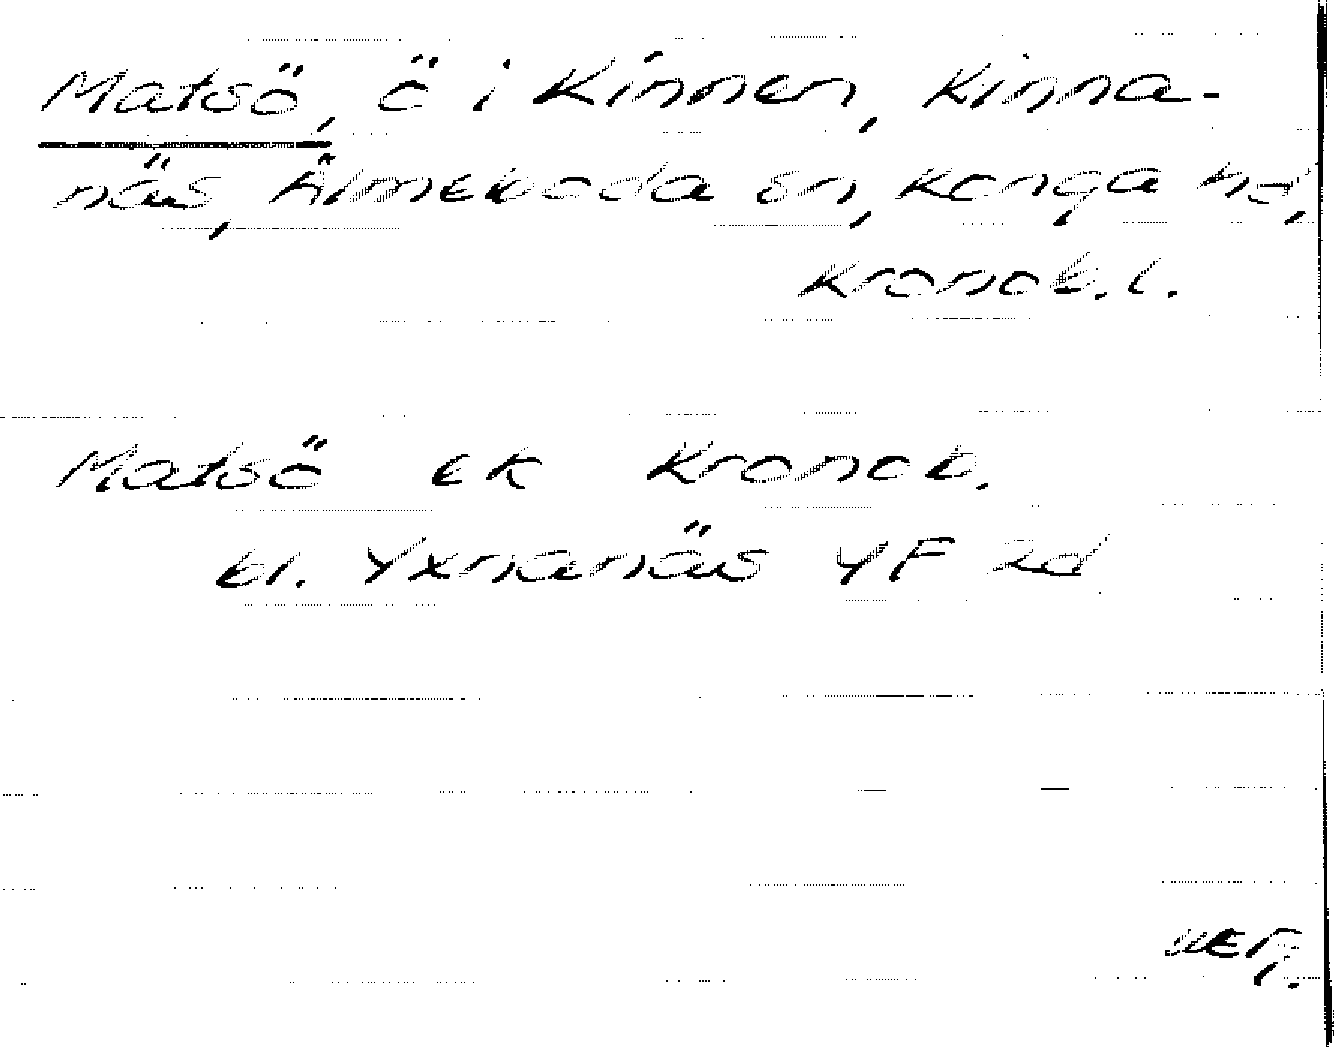 Matsö, ö i Kinnen, Kinna-
näs, Älmeboda sn, Konga hd,
Kronob. l.
Matsö ek Kronob.
bl. Yxnanäs 4F 2d